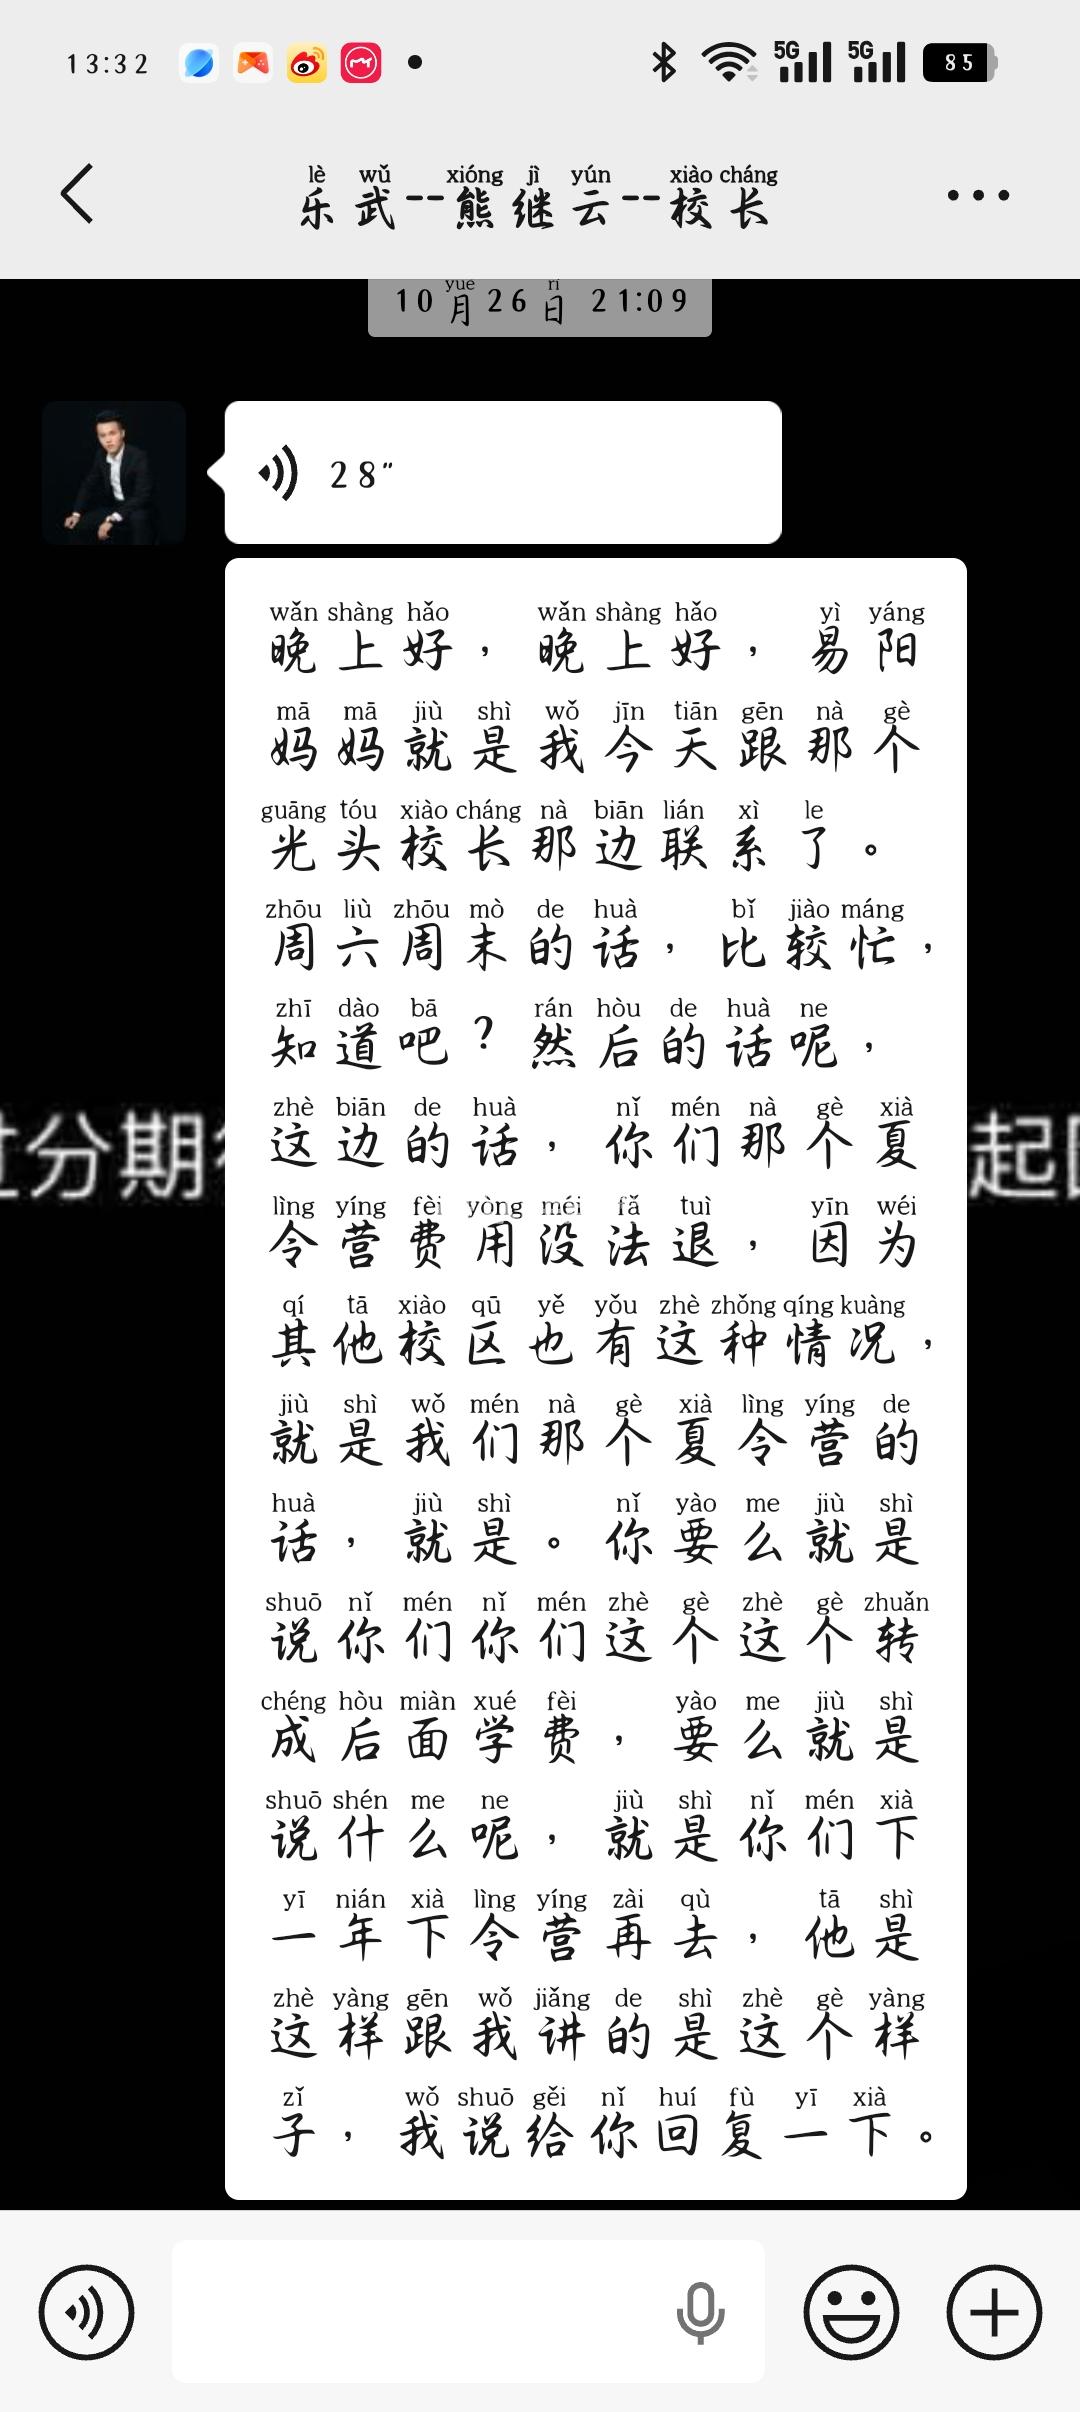 13:32
5G 5G 85
lè wǔ xióng jì yún xiào cháng
乐武--熊继云--校长
yuè rì
10月26日 21:09
28"
wǎn shàng hǎo wǎn shàng hǎo yì yáng
晚上好，晚上好，易阳
mā mā jiù shì wǒ jīn tiān gēn nà gè
妈妈就是我今天跟那个
guāng tóu xiào cháng nà biān lián xì le
光头校长那边联系了。
zhōu liù zhōu mò de huà bǐ jiào máng
周六周末的话，比较忙，
zhī dào bā rán hòu de huà ne
知道吧？然后的话呢，
zhè biān de huà nǐ mén nà gè xià
这边的话，你们那个夏
过分期待
起
lìng yíng fèi yòng méi fǎ tuì yīn wéi
令营费用没法退，因为
qí tā xiào qū yě yǒu zhè zhǒng qíng kuàng
其他校区也有这种情况，
jiù shì wǒ mén nà gè xià lìng yíng de
就是我们那个夏令营的
huà jiù shì nǐ yào me jiù shì
话，就是。你要么就是
shuō nǐ mén nǐ mén zhè gè zhè gè zhuǎn
说你们你们这个这个转
chéng hòu miàn xué fèi yào me jiù shì
成后面学费，要么就是
shuō shén me ne jiù shì nǐ mén xià
说什么呢，就是你们下
yī nián xià lìng yíng zài qù tā shì
一年下令营再去，他是
zhè yàng gēn wǒ jiǎng de shì zhè gè yàng
这样跟我讲的是这个样
zǐ wǒ shuō gěi nǐ huí fù yī xià
子，我说给你回复一下。